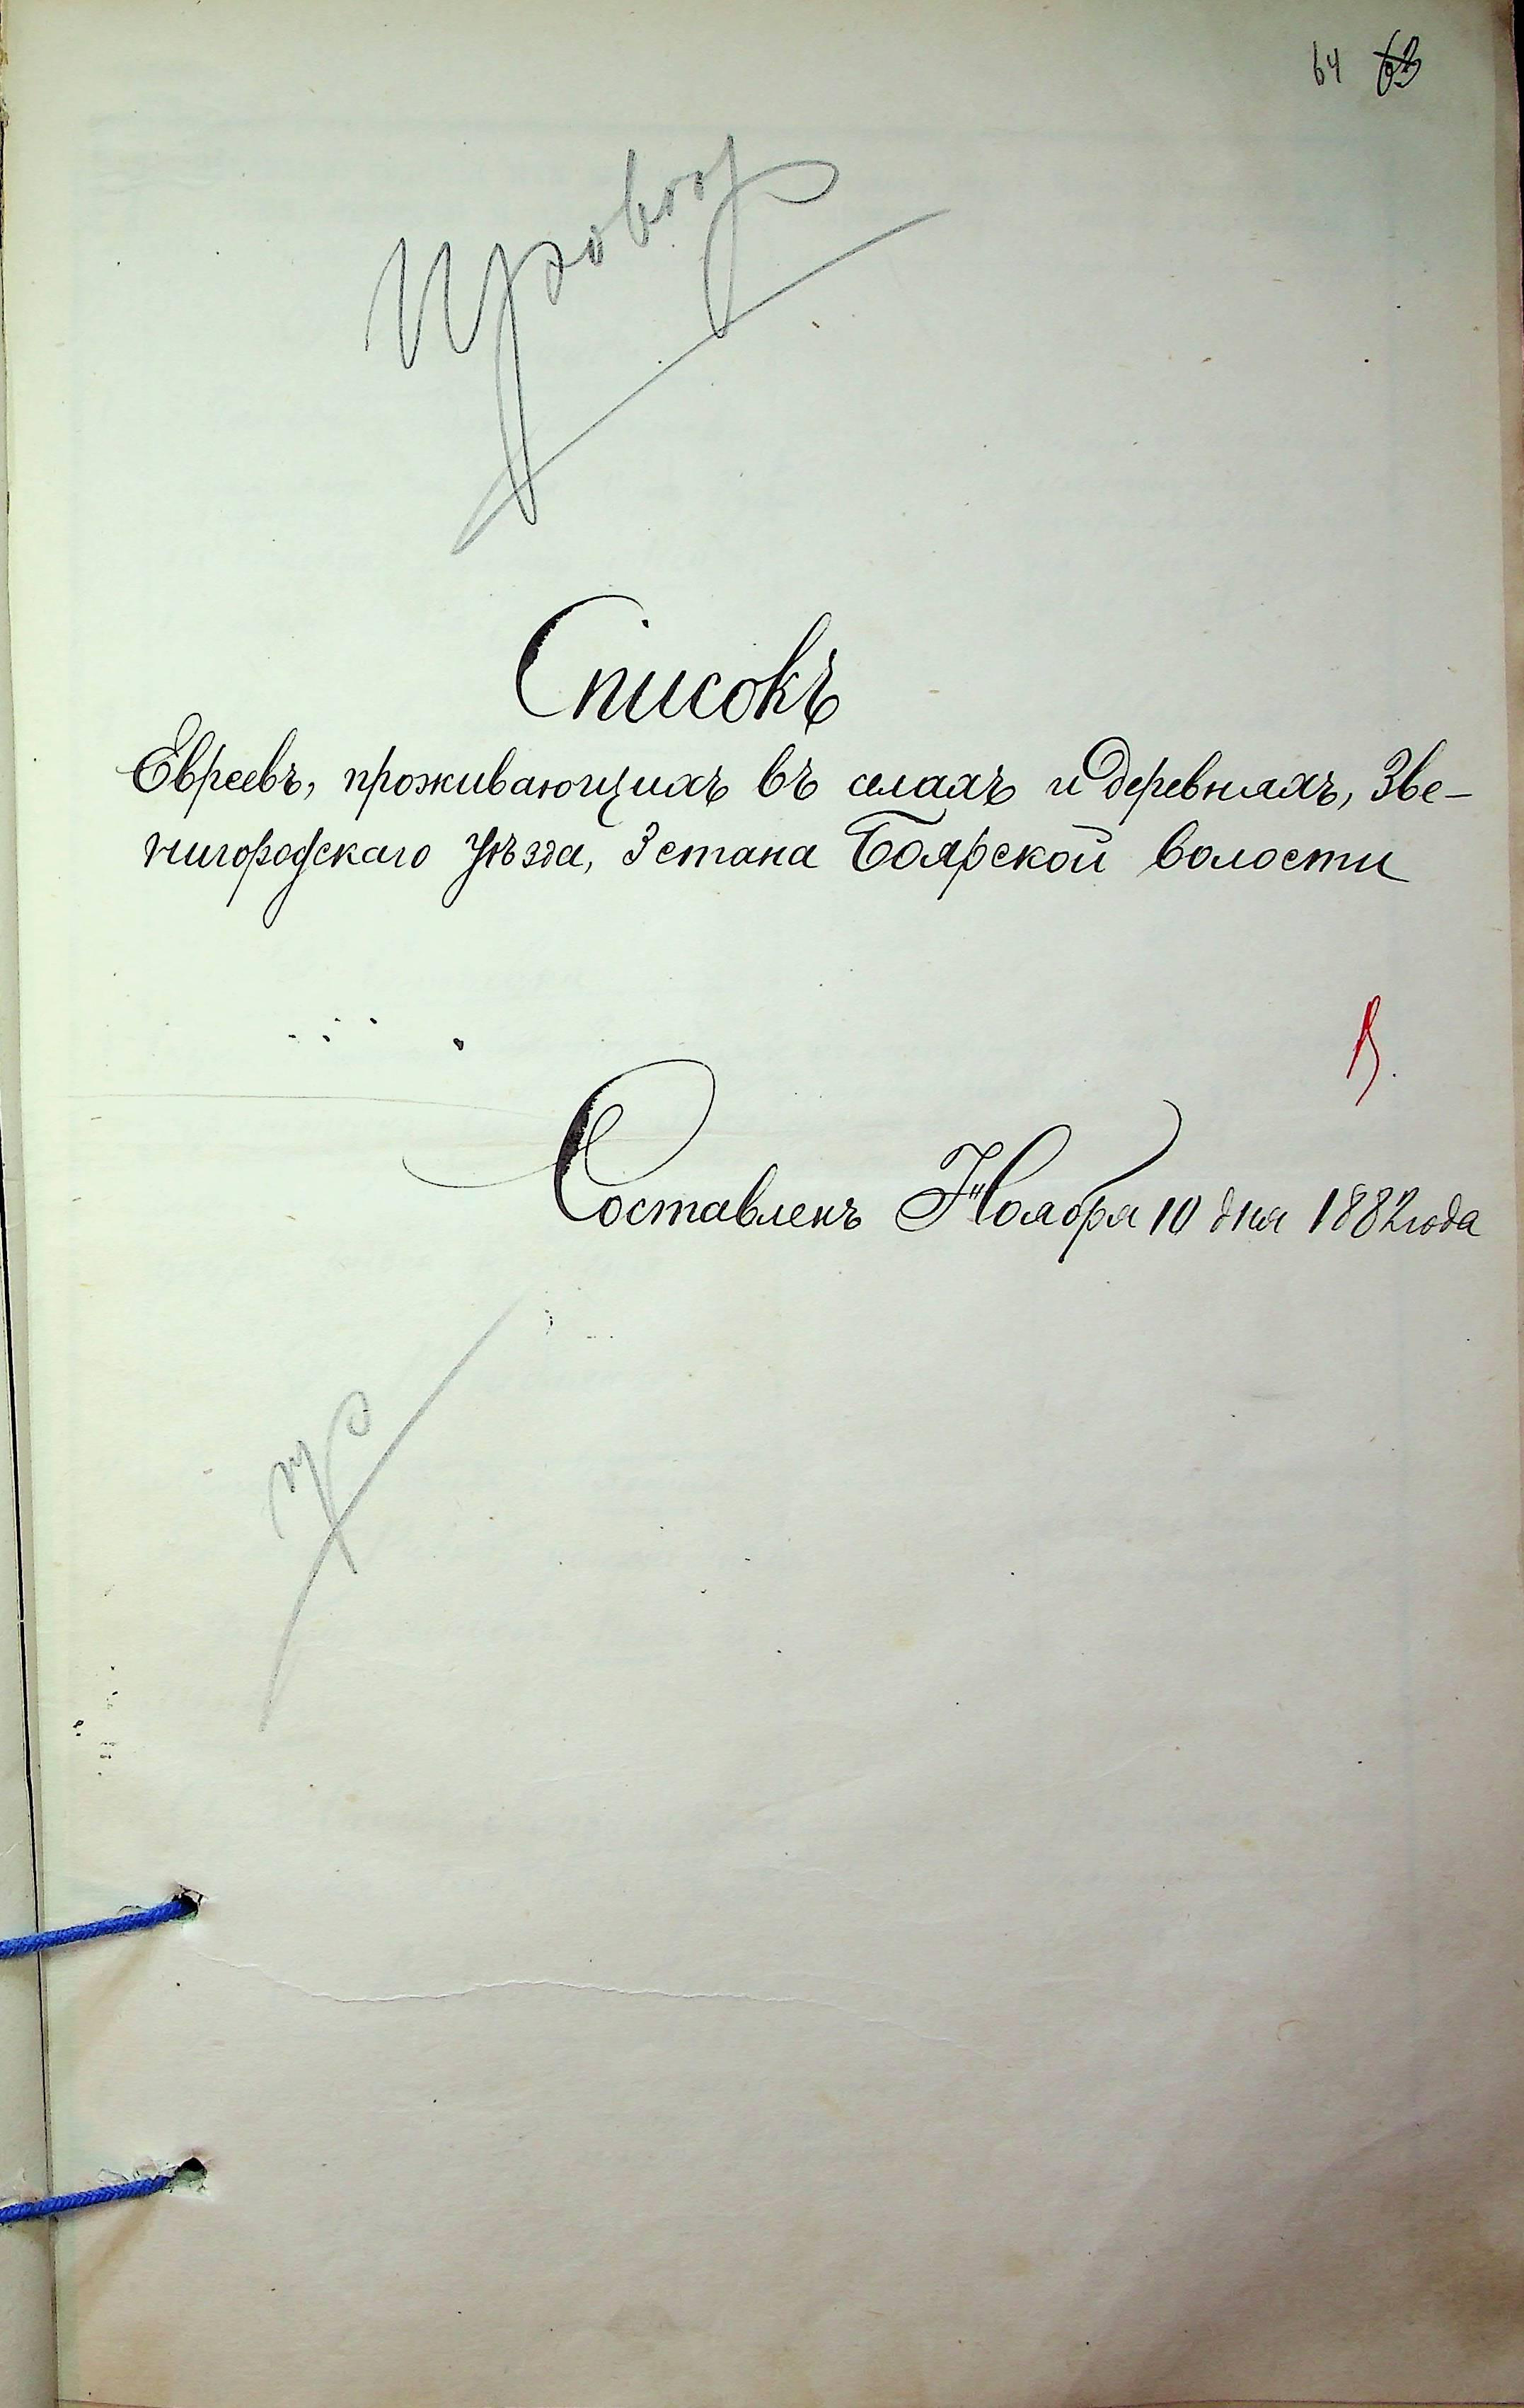 64 63
Списокъ
Евреевъ, проживающихъ въ селахъ и деревняхъ, Зве-
нигородскаго уѣзда, 3 стана Боярской волости
Составленъ Ноября 10 дня 1882 года